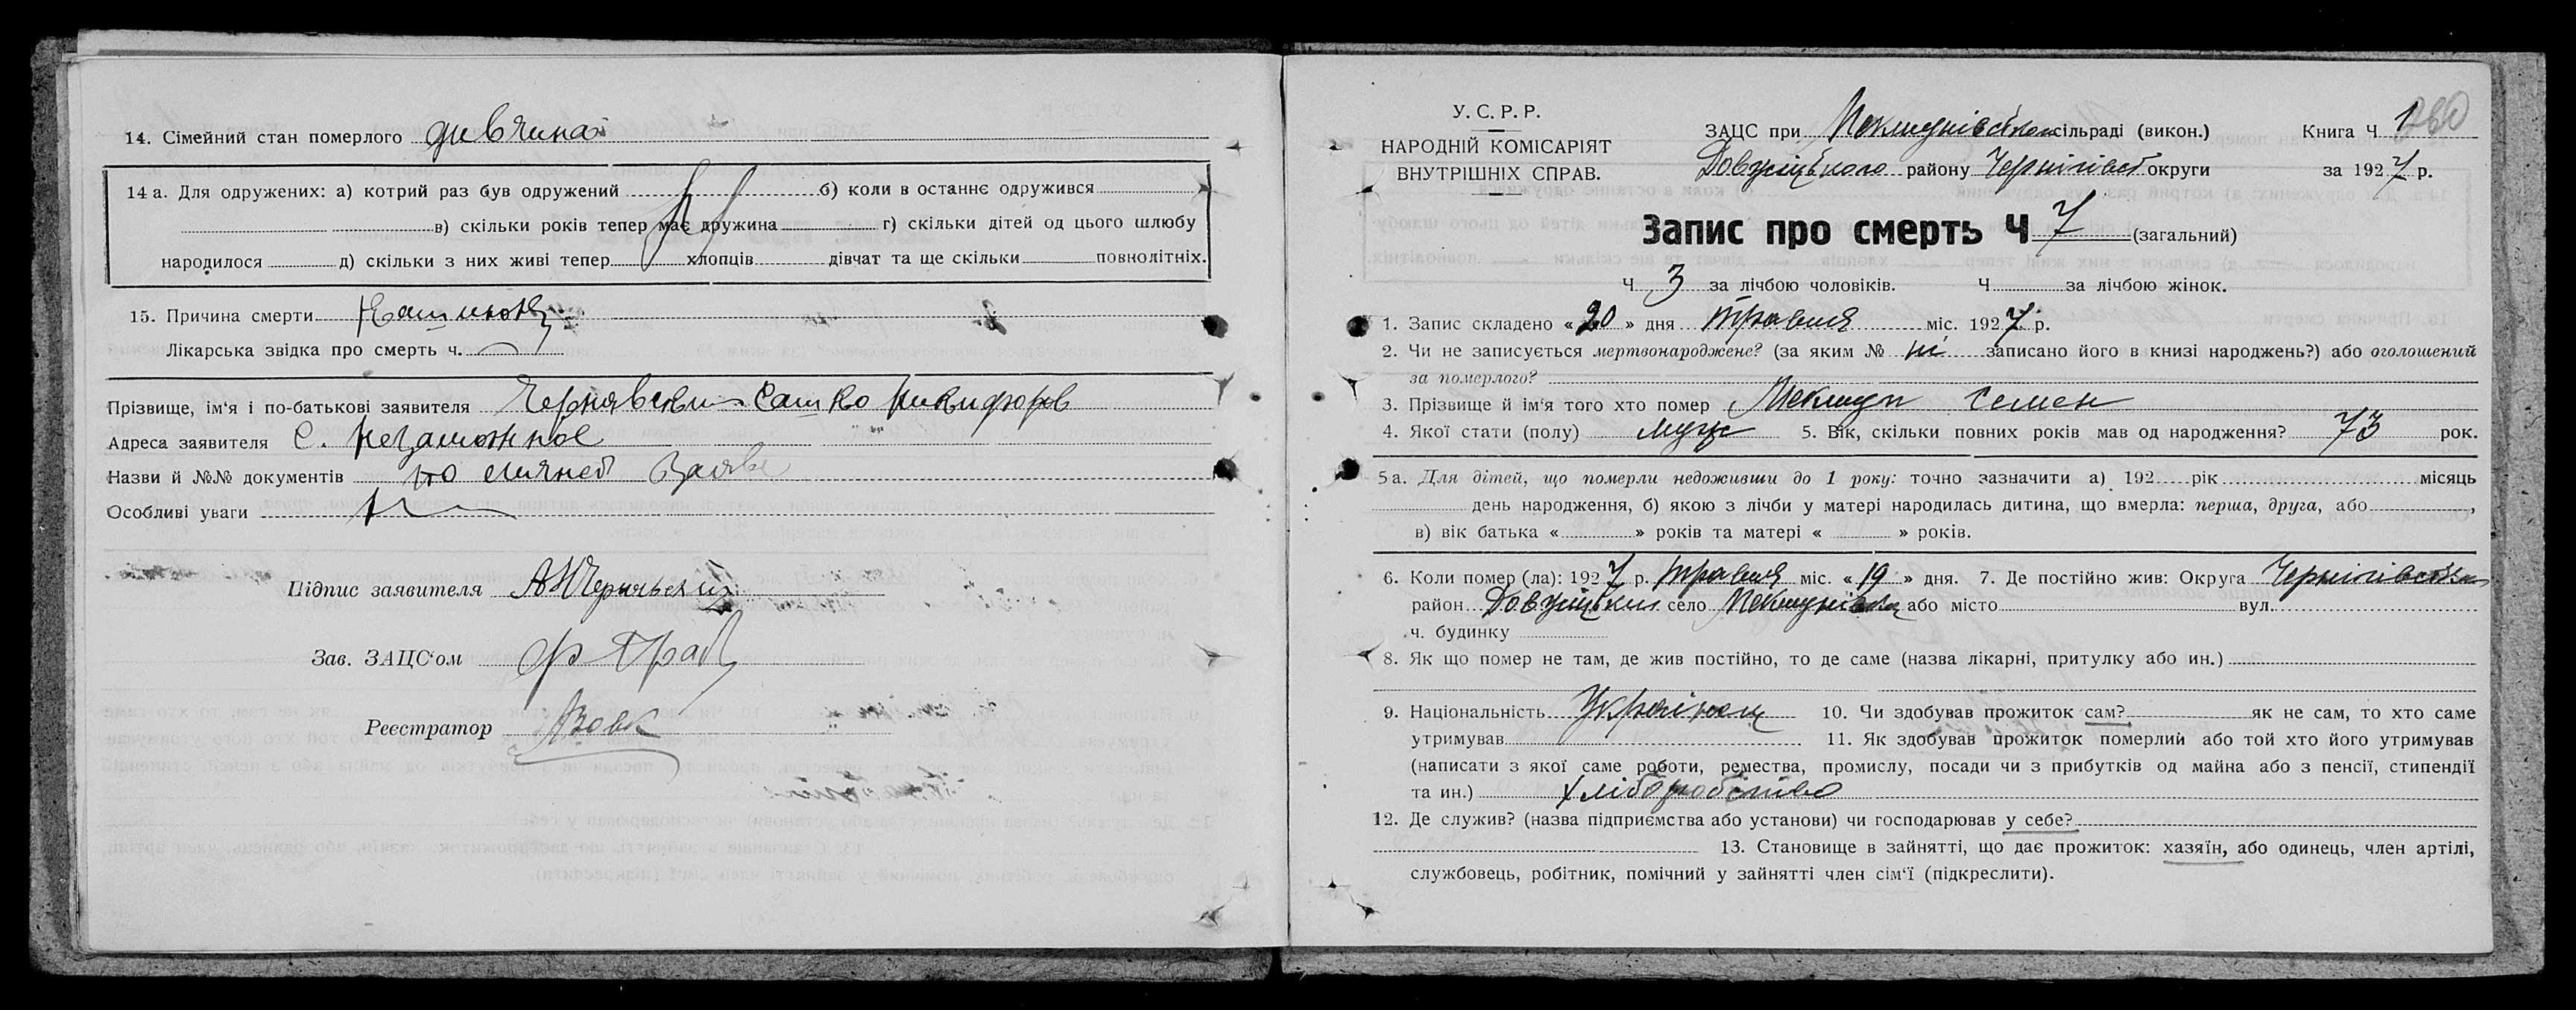 14. Сімейний стан померлого
14 а. Для одружених: а) котрий раз був одружений б) коли в останнє одружився
в) скільки років тепер має дружина г) скільки дітей од цього шлюбу
народилося д) скільки з них живі тепер хлопців дівчат та ще скільки повнолітніх.
15. Причина смерти
Лікарська звідка про смерть ч.
Прізвище, ім'я і по-батькові заявителя Сашко
Адреса заявителя С. Незаможное
Назви й №№ документів по
Особливі уваги
Підпис заявителя
Зав. ЗАЦС'ом
Реєстратор Вовк
У. С. Р. Р.
НАРОДНІЙ КОМІСАРІЯТ
ВНУТРІШНІХ СПРАВ.
ЗАЦС при сільраді (викон.) Книга Ч 1
району Чернігівсь округи за 1927 р.
Запис про смерть Ч 7 (загальний)
Ч 3 за лічбою чоловіків. Ч за лічбою жінок.
1. Запис складено « 20 » дня травня міс. 1927 р.
2. Чи не записується мертвонароджене? (за яким № ні записано його в книзі народжень?) або оголошений
за померлого?
3. Прізвище й ім'я того хто помер Семен
4. Якої стати (полу) муж 5. Вік, скільки повних років мав од народження? 73 рок.
5 а. Для дітей, що померли недоживши до 1 року: точно зазначити а) 192 рік місяць
день народження, б) якою з лічби у матері народилась дитина, що вмерла: перша, друга, або ,
в) вік батька « » років та матері « » років.
6. Коли помер (ла): 1927 р. травня міс. « 19 » дня. 7. Де постійно жив: Округа Чернігівська
район село або місто вул.
ч. будинку
8. Як що помер не там, де жив постійно, то де саме (назва лікарні, притулку або ин.)
9. Національність Українец 10. Чи здобував прожиток сам? як не сам, то хто саме
утримував 11. Як здобував прожиток померлий або той хто його утримував
(написати з якої саме роботи, ремества, промислу, посади чи з прибутків од майна або з пенсії, стипендії
та ин.) хліборобство
12. Де служив? (назва підприємства або установи) чи господарював у себе?
13. Становище в зайнятті, що дає прожиток: хазяїн, або одинець, член артілі,
службовець, робітник, помічний у зайнятті член сім'ї (підкреслити).